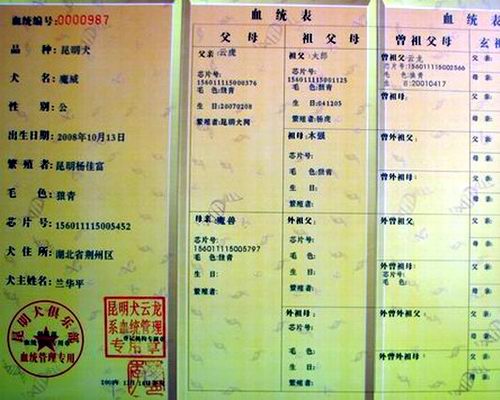 血统编号:0000987
品种:昆明犬
犬名:魔威
性别:公
出生日期:2008年10月13日
繁殖者:昆明杨佳富
毛色:狼青
芯片号:156011115005452
犬住所:湖北省荆州区
犬主姓名:兰华平
昆明犬俱乐部
血统管理专用
昆明犬云龙
系血统管理
专用章
血统表
父母
父亲:云虎
芯片号:
156011115000376
毛色:狼青
生日:20070208
繁殖者:昆明犬网
母亲:魔兽
芯片号:
156011115005797
毛色:狼青
生日:
繁殖者:
祖父母
祖父:大郎
芯片号:
156011115001125
毛色:狼青
生日:041205
繁殖者:杨虎
祖母:木强
芯片号:
毛色:狼青
生日:
繁殖者:
外祖父:
芯片号:
毛色:
生日:
繁殖者:
外祖母:
芯片号:
毛色:
生日:
繁殖者:
血统表
曾祖父母
曾祖父:云龙
芯片号:156011115002566
毛色:狼青
生日:20010417
曾祖母:
曾外祖父:
曾外祖母:
外曾祖父:
外曾祖母:
芯片号:
毛色:
外曾外祖父:
外曾外祖母:
玄祖
父亲:
母亲:
父亲:
母亲:
父亲:
母亲:
父亲:
母亲:
父亲:
母亲:
父亲:
母亲:
父亲:
母亲:
父亲: